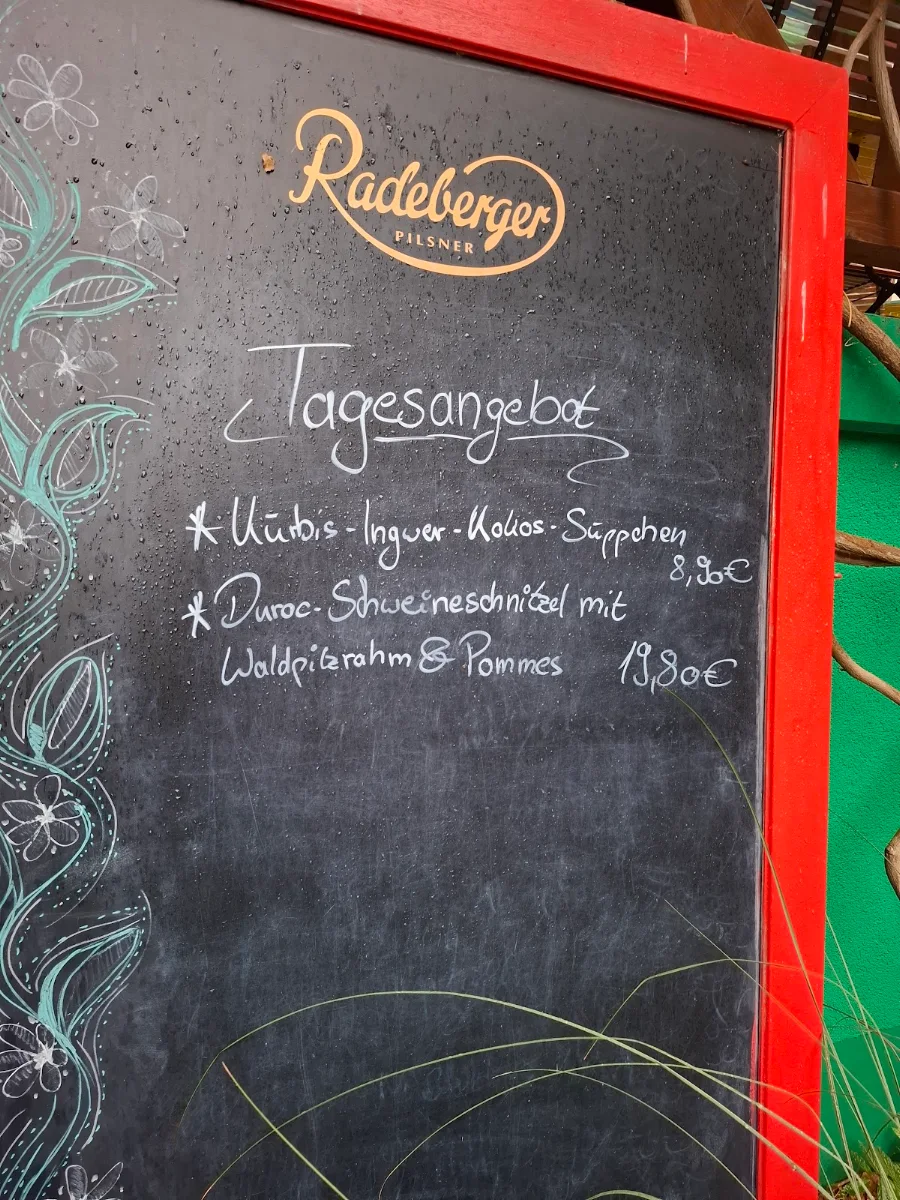 Radeberger
PILSNER
Tagesangebot
* Kürbis-Ingwer-Kokos-Süppchen
8,90€
* Duroc-Schweineschnitzel mit
Waldpilzrahm & Pommes 19,80€